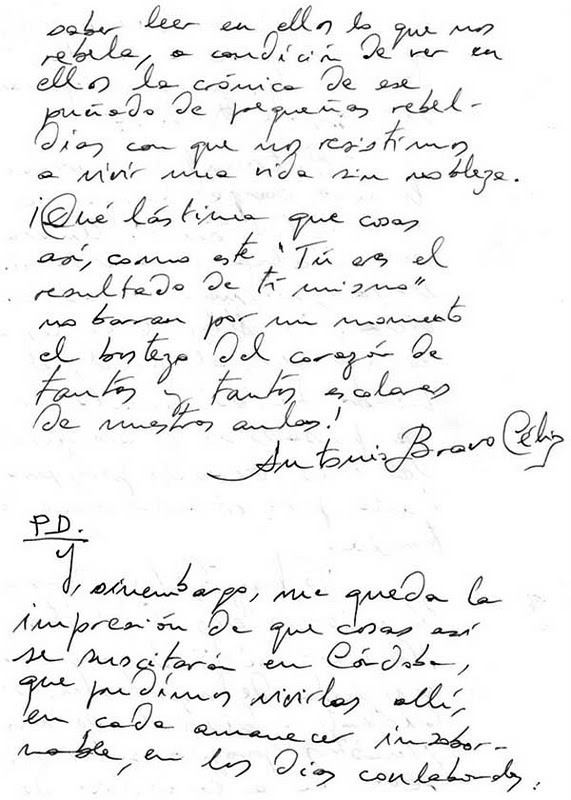 saber leer en ellos lo que nos
rebela, a condición de ver en
ellos la crónica de ese
puñado de pequeñas rebel-
días con que nos resistimos
a vivir una vida sin nobleza.
¡Qué lástima que cosas
así, como este "Tú eres el
resultado de ti mismo"
no barran por un momento
el bostezo del corazón de
tantos y tantos escolares
de nuestras aulas!
Antonio Bravo Célix
P.D.
Y, sinembargo, me queda la
impresión de que cosas así
se suscitarán en Córdoba,
que pudimos vivirlas allí,
en cada amanecer insobor-
nable, en los días